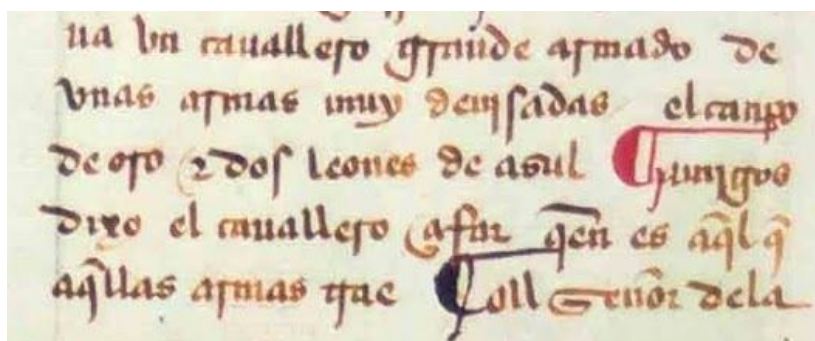 ua vn cauallero grande armado de
vnas armas muy deuisadas el canpo
de oro τ dos leones de asul ¶ amigos
dixo el cauallero çafar q̃en es aq̃l q̃
aq̃llas armas trae ¶ Coll Señor dela